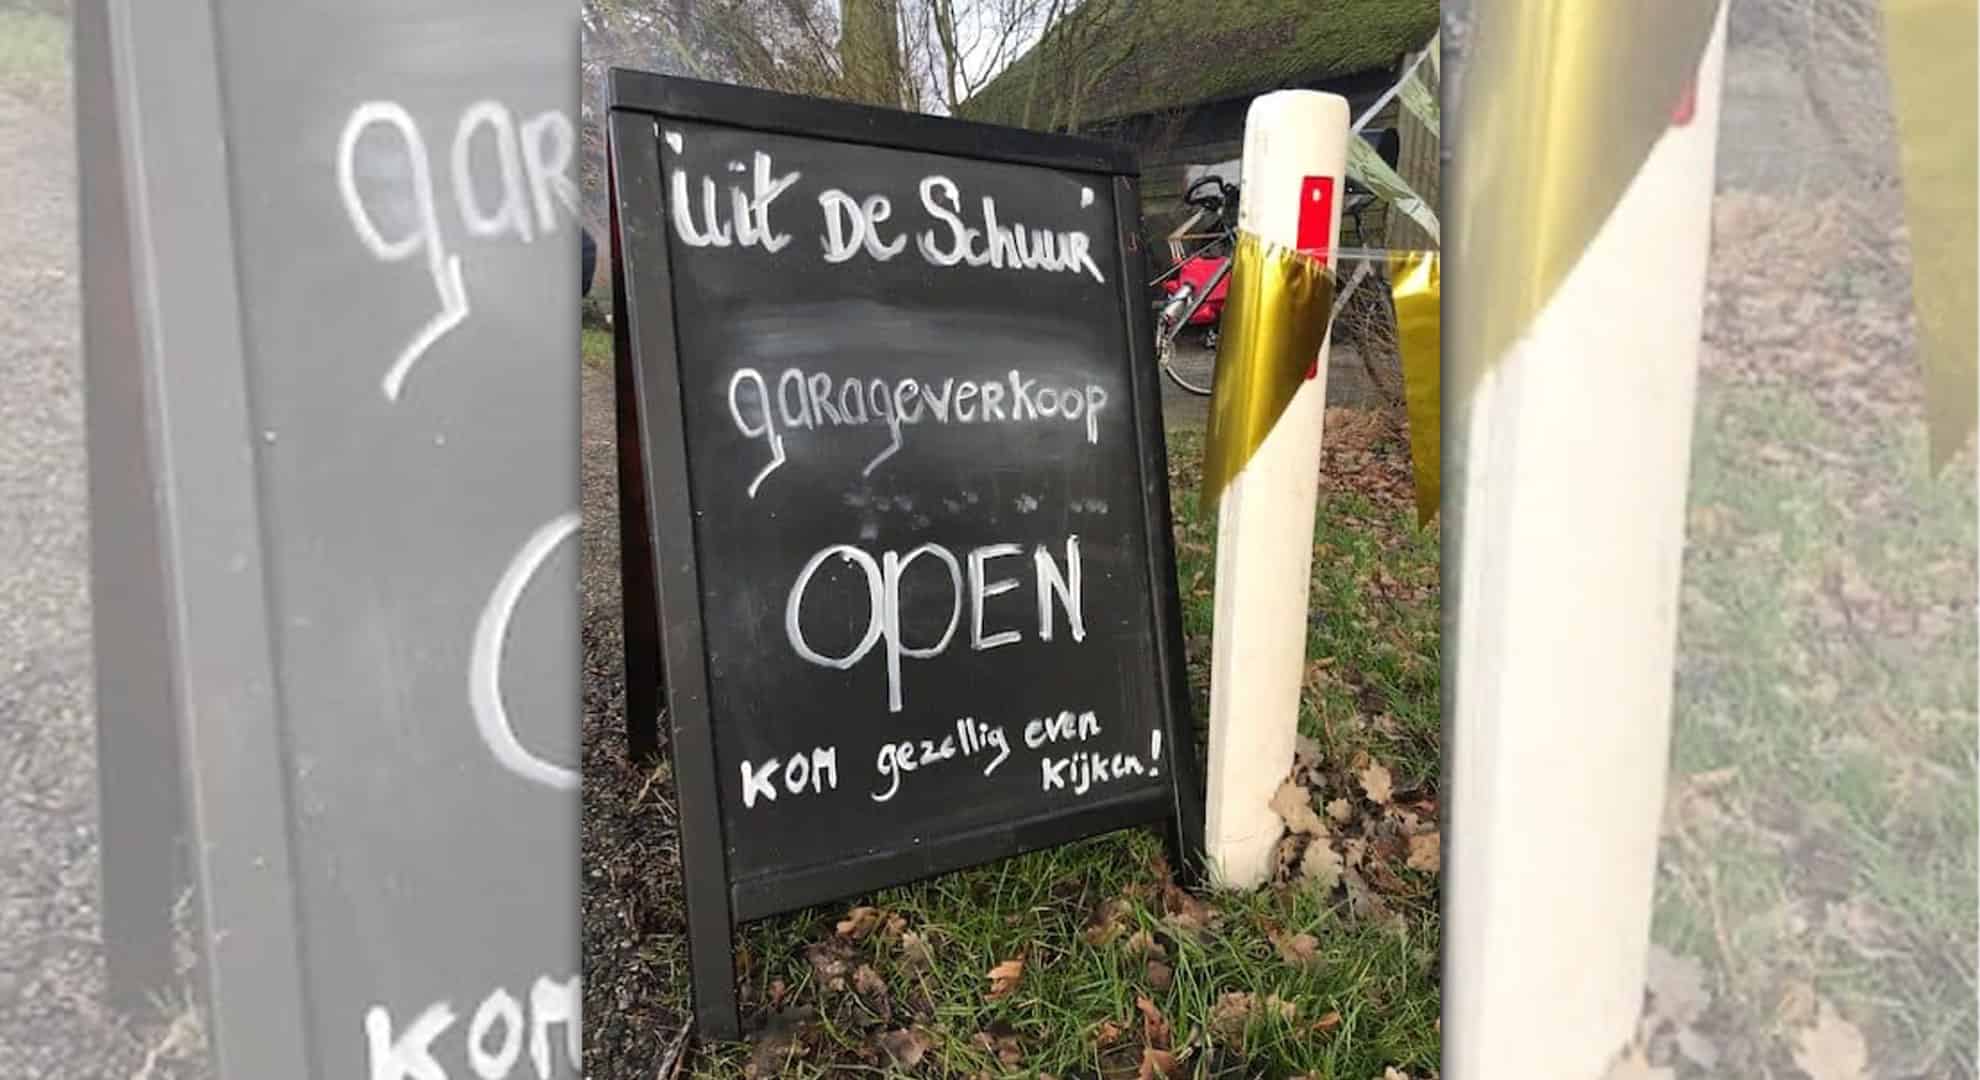 'Uit De Schuur'
garageverkoop
OPEN
KOM gezellig even
kijken!